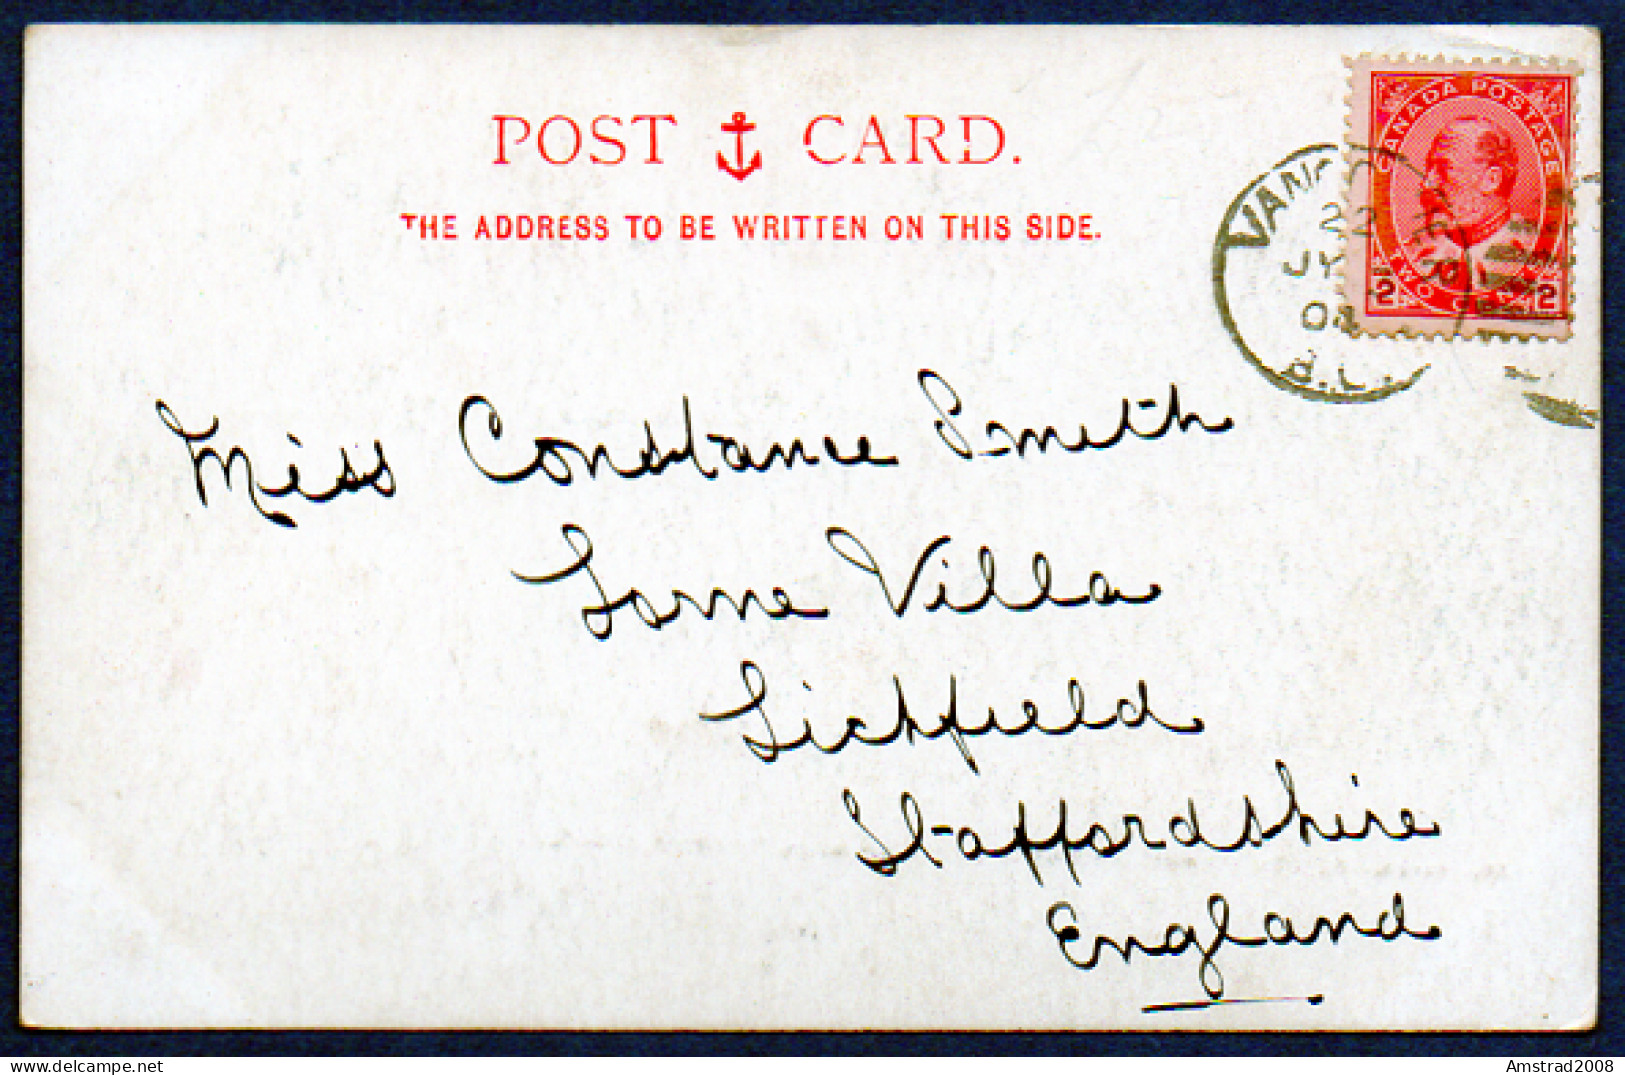 POST CARD.
THE ADDRESS TO BE WRITTEN ON THIS SIDE.
CANADA POSTAGE
2 TWO CENTS 2
22
JY
Miss Constance Smith
Lorne Villa
Lichfield
Staffordshire
England
delcampe.net
Amstrad2008